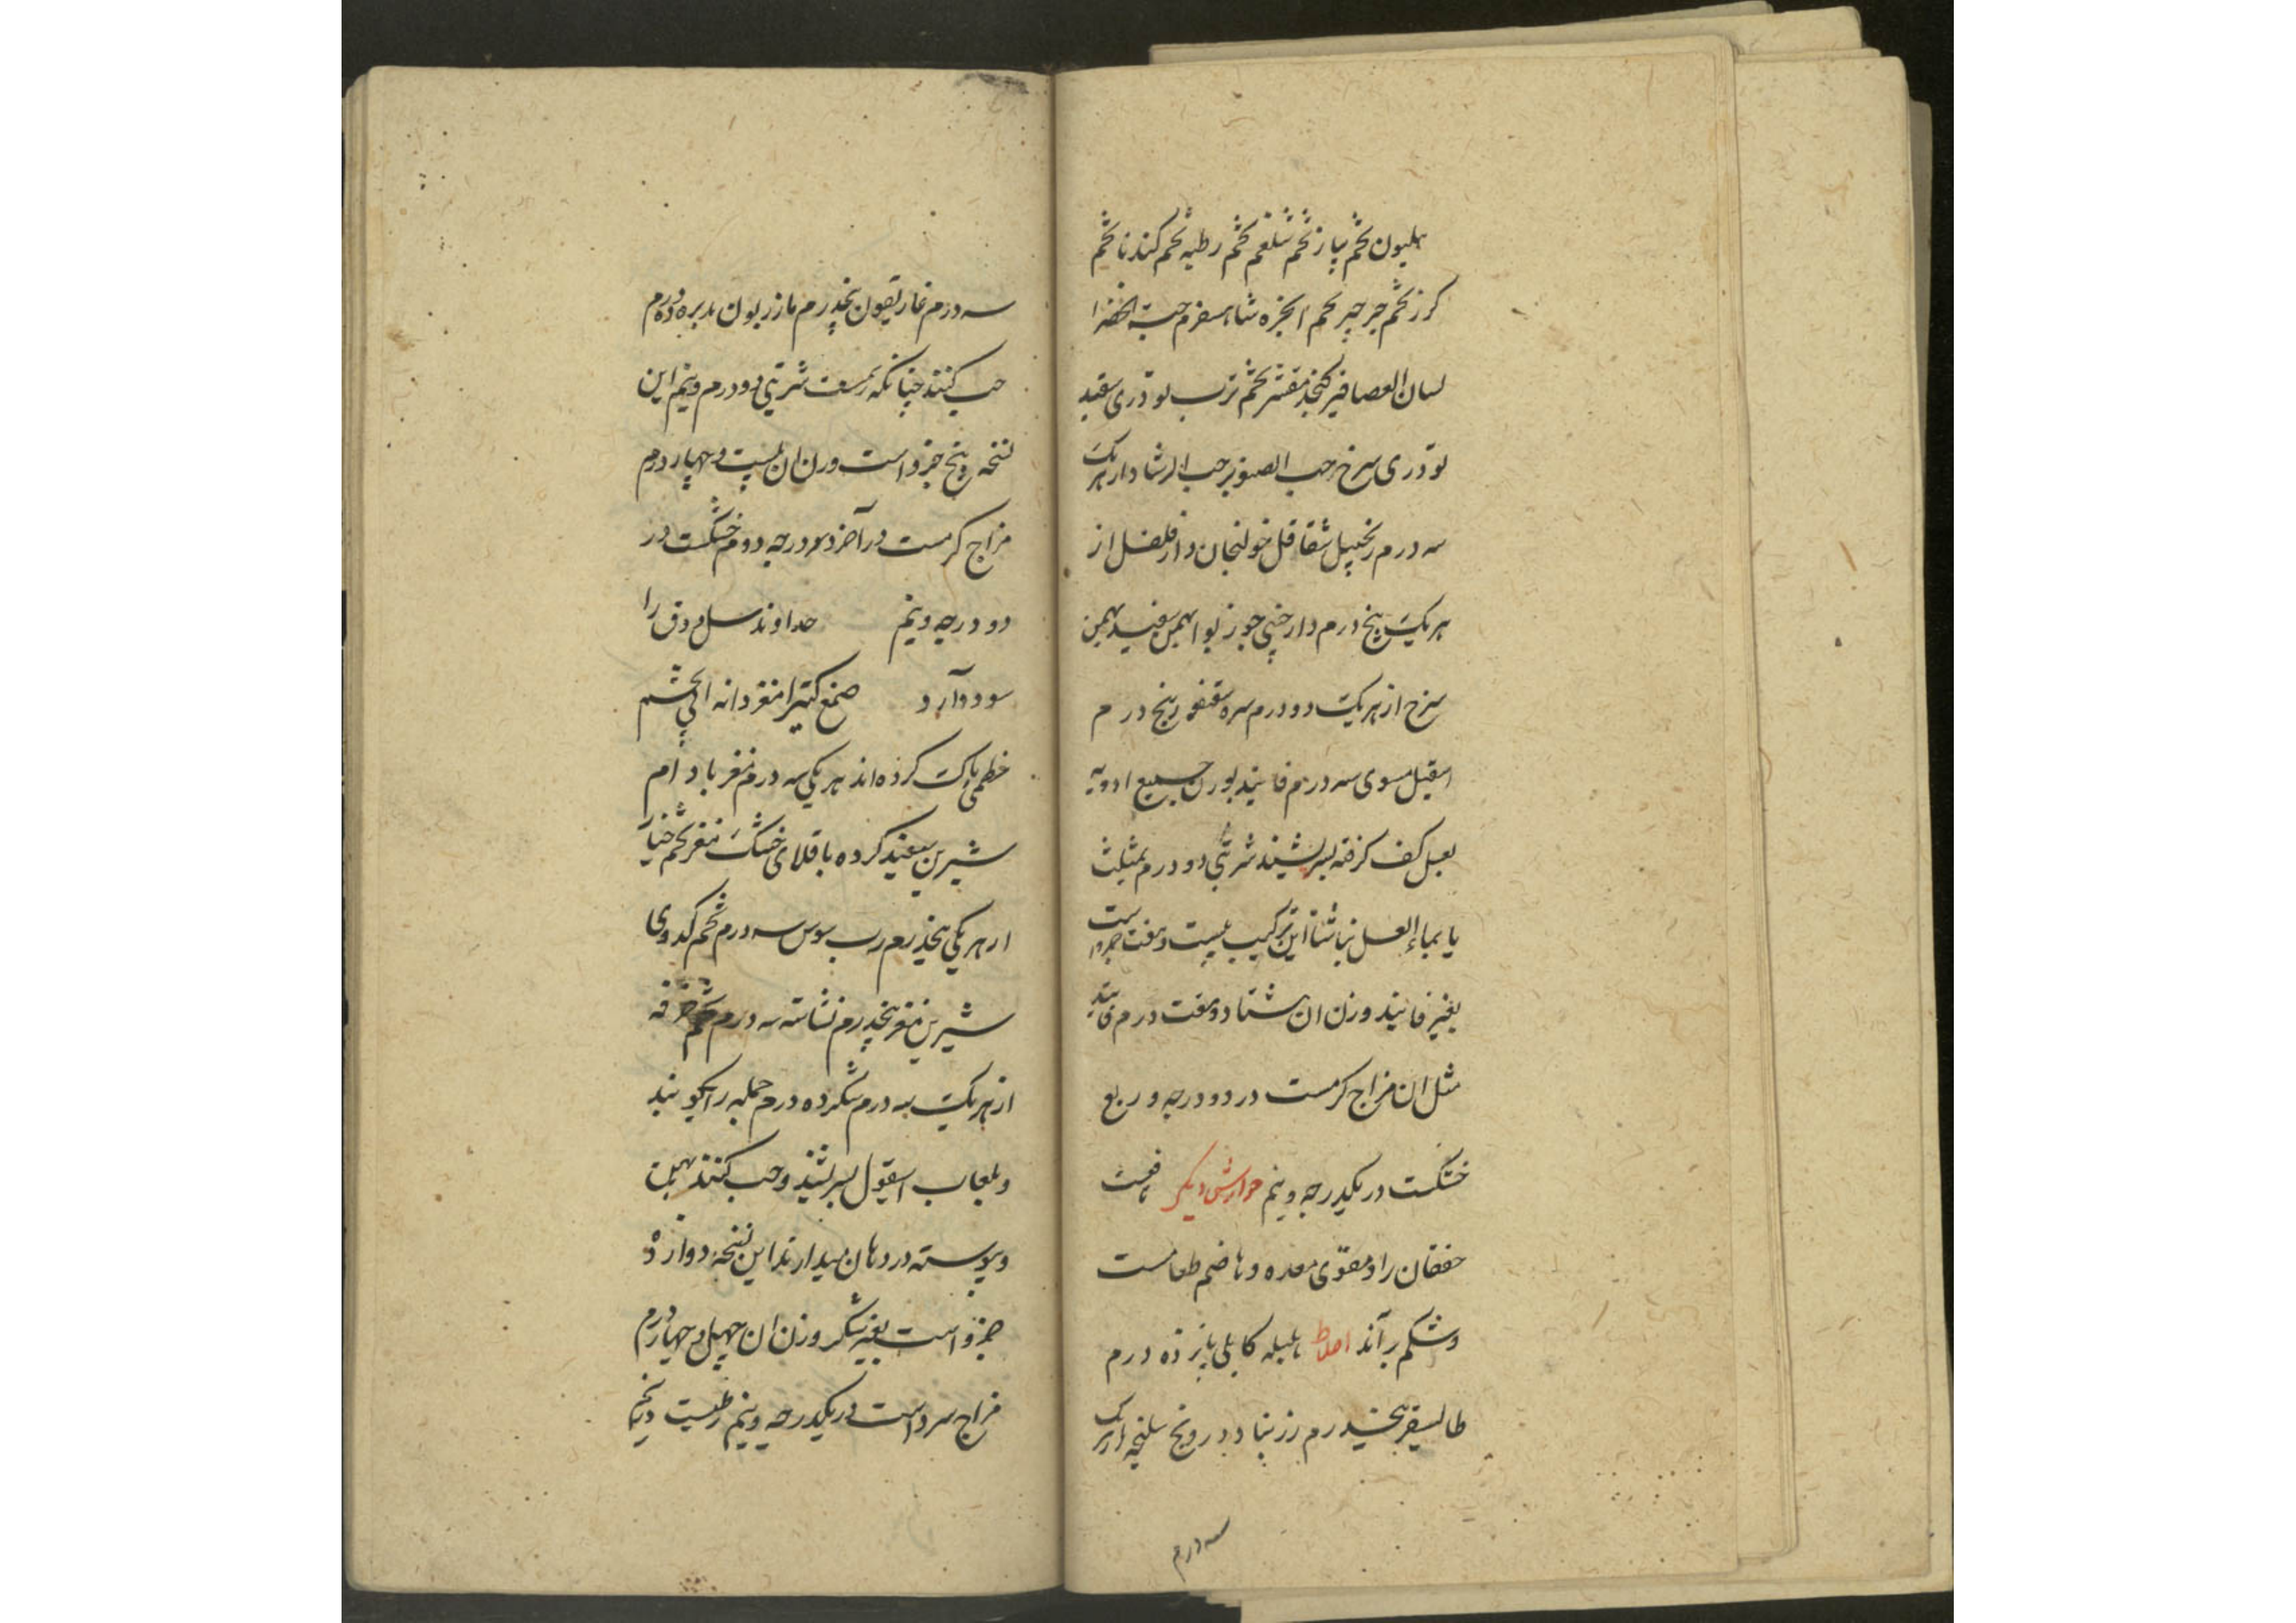 هلیون تخم پیاز تخم شلغم تخم رطبه تخم کندنا تخم
کرز تخم جرجیر تخم انجره شاهسفرم حب الخضرا
لسان العصافیر کنجد مقشر تخم ترب تودری سفید
تودری سرخ حب الصنوبر حب الرشاد از هریک
سه درم زنجبیل شقاقل خولنجان دارفلفل از
هریک پنج درم دارچینی جوز بوا بهمن سفید بهمن
سرخ از هریک دو درم سره سقنقور پنج درم
اسقیل مسوی سه درم فانیذ بوزن جمیع ادویه
بعسل کف کرفته بسریشند شربتی دو درم بمثلث
یا بماء العسل نباشتا این ترکیب بیست و هفت جزو است
بغیر فانیذ وزن ان هشتاد و هفت درم فانیذ
مثل ان مزاج کرمست در دو درجه و ربع
خشکست در یکدرجه و نیم جوارش دیکر نافعست
خفقان را و مقوی معده و هاضم طعامست
و شکم براند اخلاط هلیله کابلی پانزده درم
طالیسفر پنجدرم زرنباد درونج سلیخه از هریک
سه درم
سه درم غاریقون پنجدرم مازریون مدبر ده درم
حب کنند چنانکه رسمست شربتی دو درم و نیم این
نسخه پنج جزو است وزن ان بیست و چهار درم
مزاج کرمست در آخر درجه دوم خشکست در
دو درجه و نیم خداوند سل و دق را
سود دارد صمغ کتیرا مغز دانه ابی تخم
خطمی پاک کرده از هر یکی سه درم مغز بادام
شیرین سفید کرده باقلای خشک مغز تخم خیار
از هر یکی پنجدرم رب سوس سه درم تخم کدوی
شیرین مغز پنجدرم نشاسته سه درم تخم خرفه
از هریک سه درم شکر ده درم جمله را بکوبند
و بلعاب اسقیول بسریشند و حب کنند بهیات
و پیوسته در دهان میدارند این نسخه دوازده
جزو است بغیر شکر وزن ان چهل و چهار درم
مزاج سرد است در یکدرجه و نیم رطبست در نیم